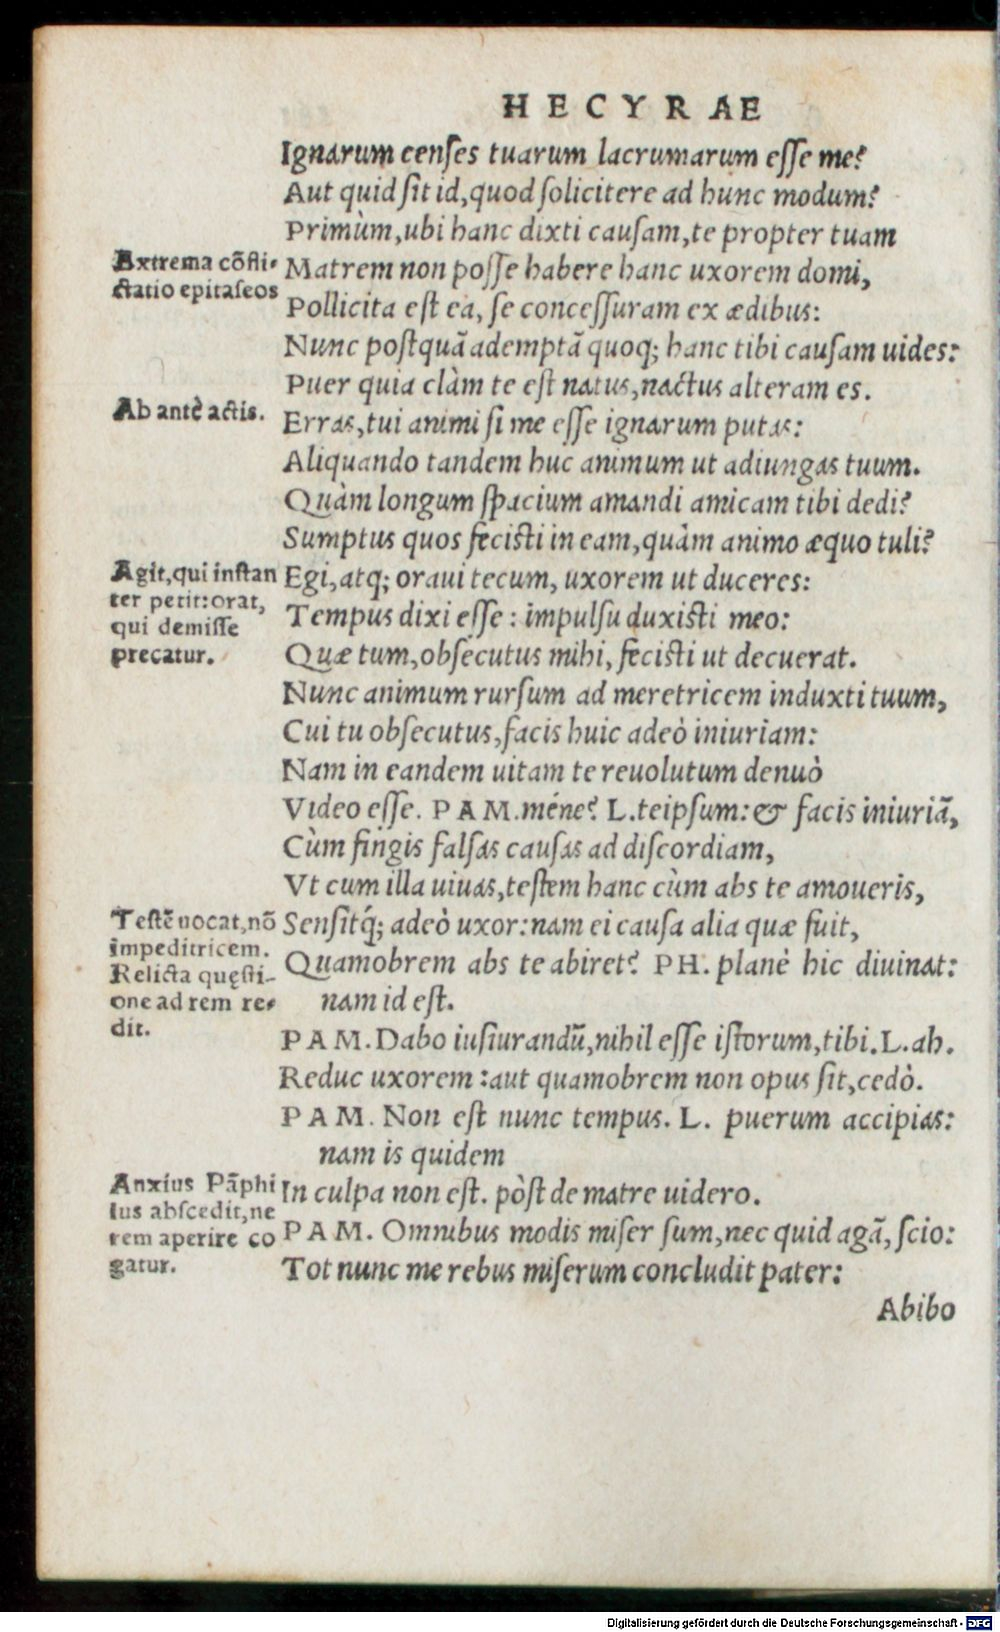 HECYRAE
Ignarum censes tuarum lacrumarum esse me?
Aut quid sit id, quod solicitere ad hunc modum?
Primùm, ubi hanc dixti causam, te propter tuam
Extrema cōfli-
ctatio epitaseos
Matrem non posse habere hanc uxorem domi,
Pollicita est ea, se concessuram ex ædibus:
Nunc postquā ademptā quoq; hanc tibi causam uides:
Puer quia clàm te est natus, nactus alteram es.
Ab antè actis.
Erras, tui animi si me esse ignarum putas:
Aliquando tandem huc animum ut adiungas tuum.
Quàm longum spacium amandi amicam tibi dedi?
Sumptus quos fecisti in eam, quàm animo æquo tuli?
Agit, qui instan
ter petit: orat,
qui demisse
precatur.
Egi, atq; oraui tecum, uxorem ut duceres:
Tempus dixi esse: impulsu duxisti meo:
Quæ tum, obsecutus mihi, fecisti ut decuerat.
Nunc animum rursum ad meretricem induxti tuum,
Cui tu obsecutus, facis huic adeò iniuriam:
Nam in eandem uitam te reuolutum denuò
Video esse. PAM. méne? L. teipsum: & facis iniuriā,
Cùm fingis falsas causas ad discordiam,
Vt cum illa uiuas, testem hanc cùm abs te amoueris,
Testē uocat, nō
impeditricem.
Relicta quęsti-
one ad rem re-
dit.
Sensitq́; adeò uxor: nam ei causa alia quæ fuit,
Quamobrem abs te abiret? PH. planè hic diuinat:
nam id est.
PAM. Dabo iusiurandū, nihil esse istorum, tibi. L. ah.
Reduc uxorem: aut quamobrem non opus sit, cedò.
PAM. Non est nunc tempus. L. puerum accipias:
nam is quidem
Anxius Pāphi
lus abscedit, ne
rem aperire co
gatur.
In culpa non est. pòst de matre uidero.
PAM. Omnibus modis miser sum, nec quid agā, scio:
Tot nunc me rebus miserum concludit pater:
Abibo
Digitalisierung gefördert durch die Deutsche Forschungsgemeinschaft - DFG